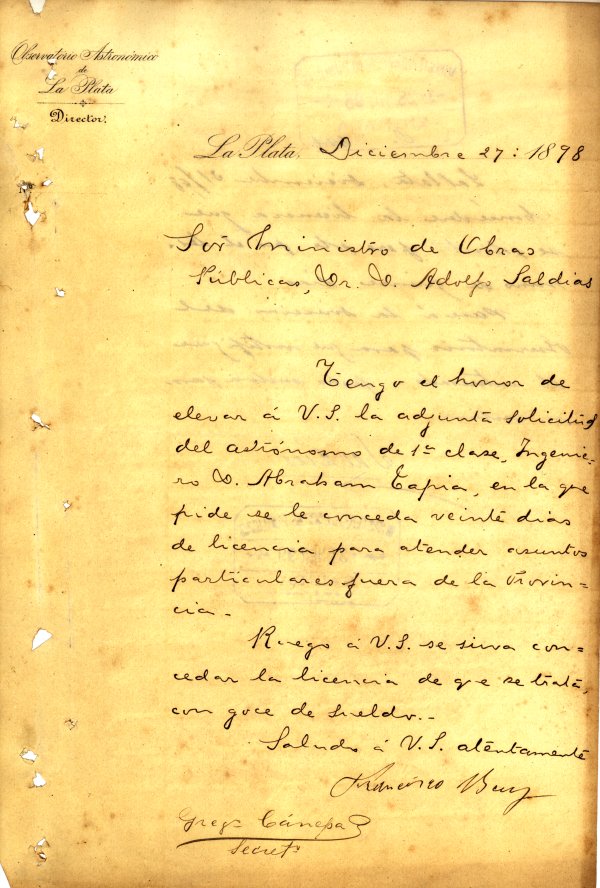 Observatorio Astronómico
de
La Plata
Director.
La Plata, Diciembre 27: 1898
Sor Ministro de Obras
Públicas, Dr. D. Adolfo Saldias
Tengo el honor de
elevar á V.S. la adjunta solicitud
del astrónomo de 1ª clase, Ingenie-
ro D. Abraham Tapia, en la que
pide se le conceda veinte dias
de licencia para atender asuntos
particulares fuera de la Provin-
cia.-
Ruego á V.S. se sirva con-
cedar la licencia de que se trata,
con goce de sueldo.-
Saludo á V.S. atentamente
Francisco Beuf
Gregº Cánepa
Secretº